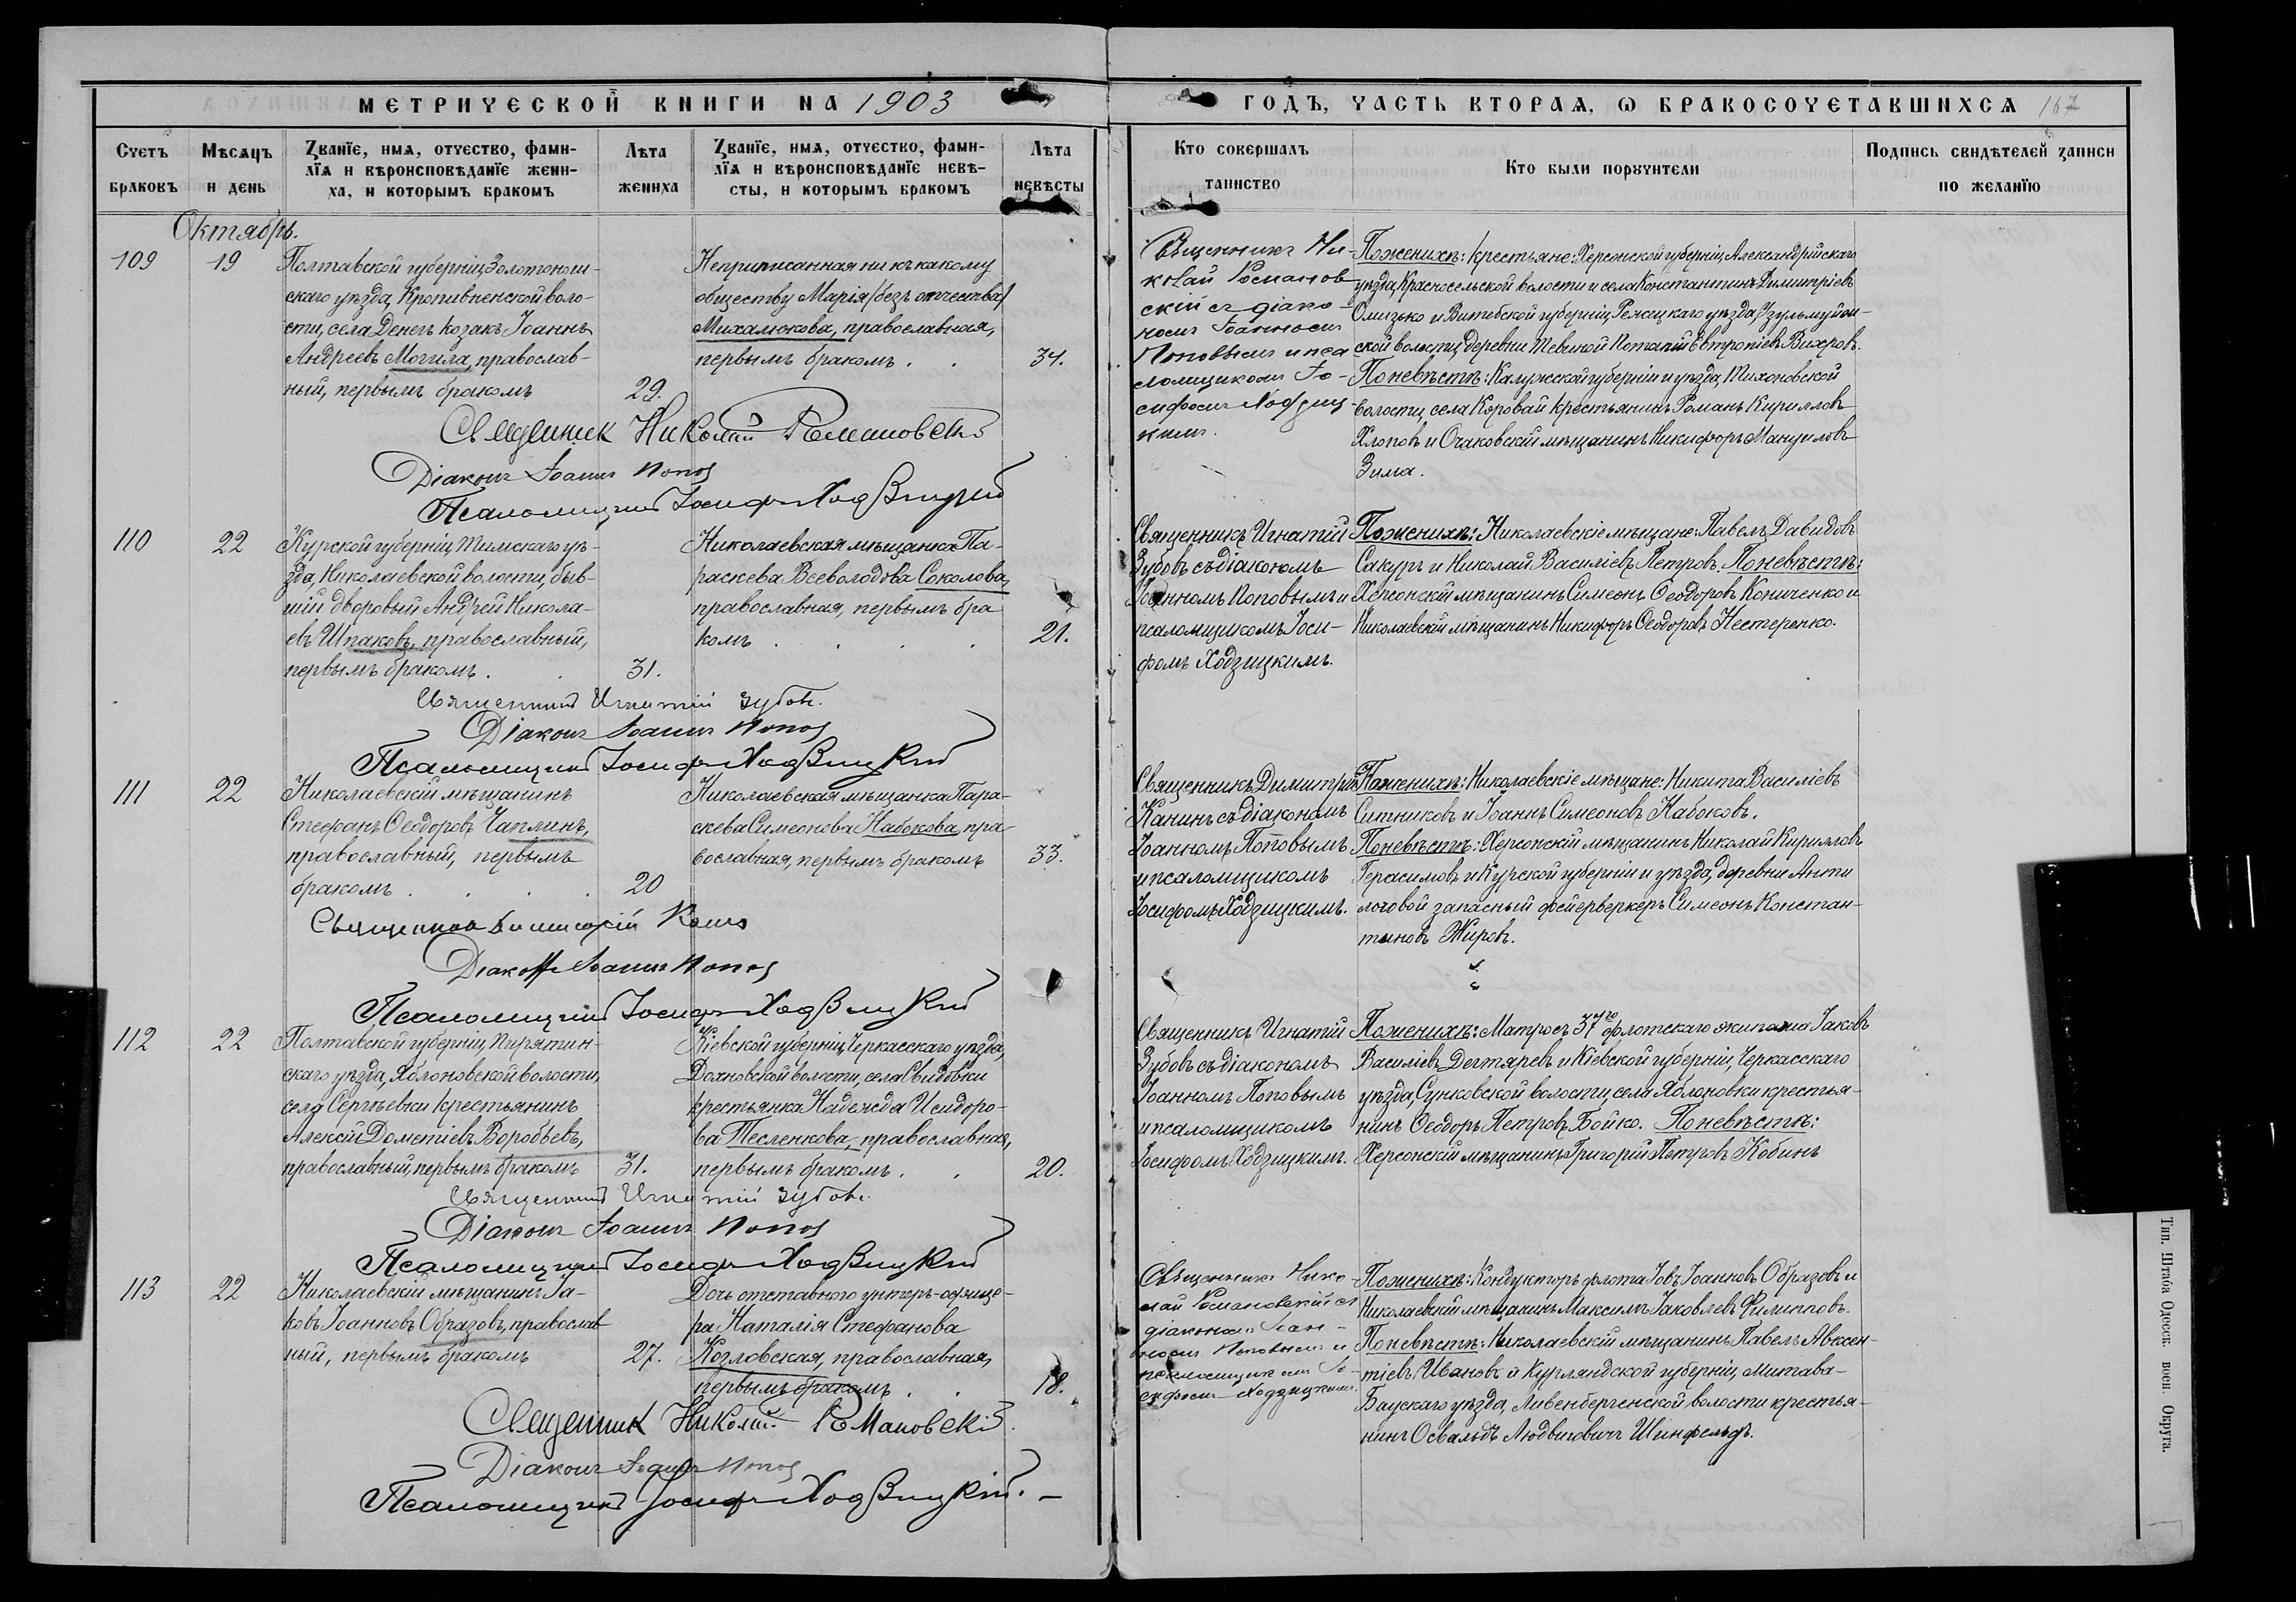 МЕТРИЧЕСКОЙ КНИГИ НА 1903
ГОДЪ, ЧАСТЬ ВТОРАЯ, Ѡ БРАКОСОЧЕТАВШИХСЯ 167
Счетъ браковъ
Мѣсяцъ и день
Званїе, имя, отчество, фами-
лїя и вѣроисповѣданїе жени-
ха, и которымъ бракомъ
Лѣта жениха
Званїе, имя, отчество, фами-
лїя и вѣроисповѣданїе невѣ-
сты, и которымъ бракомъ
Лѣта невѣсты
Кто совершалъ таинство
Кто были поручители
Подпись свидѣтелей записи по желанїю
Октябрь.
109
19
Полтавской губерніи, Золотонош-
скаго уѣзда, Кропивненской воло-
сти, села Денегъ козакъ Іоаннъ
Андреевъ Могила, православ-
ный, первымъ бракомъ
29.
Неприписанная ни къ какому
обществу Марія /безъ отчества/
Михалюкова, православная,
первымъ бракомъ . .
34.
Священникъ Ни-
колай Романов-
скій съ діако-
номъ Іоанномъ
Поповымъ и пса
ломщикомъ Іо-
сифомъ Ходзиц-
кимъ.
По женихѣ: крестьяне: Херсонской губерніи, Александрійскаго
уѣзда, Красносельской волости и села Константинъ Димитріевъ
и Витебской губерніи, Рѣжицкаго уѣзда,
ской волости, деревни Потапій Евтропіевъ Вихровъ.
По невѣстѣ: Калужской губерніи и уѣзда, Тихоновской
волости, села Коровай крестьянинъ Романъ Кирилловъ
Хлоповъ и Очаковскій мѣщанинъ Никифоръ Мануиловъ
Зима.
Священник Николай Романовскій
Діаконъ Іоаннъ Поповъ
Псаломщикъ Іосифъ Ходзицкій
110
22
Курской губерніи Тимскаго уѣ-
зда, Николаевской волости, быв-
шій дворовый Андрей Никола-
евъ Шпаковъ, православный,
первымъ бракомъ . .
31.
Николаевская мѣщанка Па-
раскева Всеволодова Соколова,
православная, первымъ бра
комъ . . . .
21.
Священникъ Игнатій
Зубовъ съ діакономъ
Іоанномъ Поповымъ и
псаломщикомъ Іоси-
фомъ Ходзицкимъ.
По женихѣ: Николаевскіе мѣщане: Павелъ Давидовъ
Сакуръ и Николай Василіевъ Петровъ. По невѣстѣ:
Херсонскій мѣщанинъ Симеонъ Ѳеодоровъ Кониченко и
Николаевскій мѣщанинъ Никифоръ Ѳеодоровъ Нестеренко.
Священникъ Игнатій Зубовъ.
Діаконъ Іоаннъ Поповъ
Псаломщикъ Іосифъ Ходзицкій
111
22
Николаевскій мѣщанинъ
Стефанъ Ѳеодоровъ Чаплинъ,
православный, первымъ
бракомъ . . . .
20
Николаевская мѣщанка Пара-
скева Симеонова Набокова, пра-
вославная, первымъ бракомъ
33.
Священникъ Димитрій
Канинъ съ діакономъ
Іоанномъ Поповымъ
и псаломщикомъ
Іосифомъ Ходзицкимъ.
По женихѣ: Николаевскіе мѣщане: Никита Василіевъ
Ситниковъ и Іоаннъ Симеоновъ Набоковъ.
По невѣстѣ: Херсонскій мѣщанинъ Николай Кирилловъ
Герасимовъ и Курской губерніи и уѣзда, деревни Анпи
логовой запасный фейерверкеръ Симеонъ Констан-
тиновъ Жировъ.
Священникъ Димитрій Канинъ
Діаконъ Іоаннъ Поповъ
Псаломщикъ Іосифъ Ходзицкій
112
22
Полтавской губерніи, Пирятин-
скаго уѣзда, Яблоновской волости,
села Сергѣевки крестьянинъ
Алексій Дометіевъ Воробьевъ,
православный, первымъ бракомъ
31.
Кіевской губерніи, Черкасскаго уѣзда,
Дахновской волости, села Свидовки
крестьянка Надежда Исидоро-
ва Тесленкова, православная,
первымъ бракомъ . .
20.
Священникъ Игнатій
Зубовъ съ діакономъ
Іоанномъ Поповымъ
и псаломщикомъ
Іосифомъ Ходзицкимъ.
По женихѣ: Матросъ 37го флотскаго экипажа Іаковъ
Василіевъ Дегтяревъ и Кіевской губерніи, Черкасскаго
уѣзда, Сунковской волости, села Яблоновки крестья-
нинъ Ѳеодоръ Петровъ Бойко. По невѣстѣ:
Херсонскій мѣщанинъ Григорій Петровъ Кобинъ
Священникъ Игнатій Зубовъ.
Діаконъ Іоаннъ Поповъ
Псаломщикъ Іосифъ Ходзицкій
113
22
Николаевскій мѣщанинъ Іа-
ковъ Іоанновъ Образовъ, православ
ный, первымъ бракомъ
27.
Дочь отставного унтеръ-офице-
ра Наталія Стефанова
Козловская, православная,
первымъ бракомъ . .
18.
Священникъ Нико
лай Романовскій съ
діакономъ Іоан-
номъ Поповымъ и
псаломщикомъ Іо-
сифомъ Ходзицкимъ.
По женихѣ: Кондукторъ флота Іовъ Іоанновъ Образовъ и
Николаевскій мѣщанинъ Максимъ Іаковлевъ Филипповъ.
По невѣстѣ: Николаевскій мѣщанинъ Павелъ Авксен-
тіевъ Ивановъ и Курляндской губерніи, Митава-
Баускаго уѣзда, Ливенбергенской волости крестья-
нинъ Освальдъ Людвиговичъ Шинфельдъ.
Священник Николай Романовскій
Діаконъ Іоаннъ Поповъ
Псаломщикъ Іосифъ Ходзицкій. –
Тип. Штаба Одесск. воен. Округа.